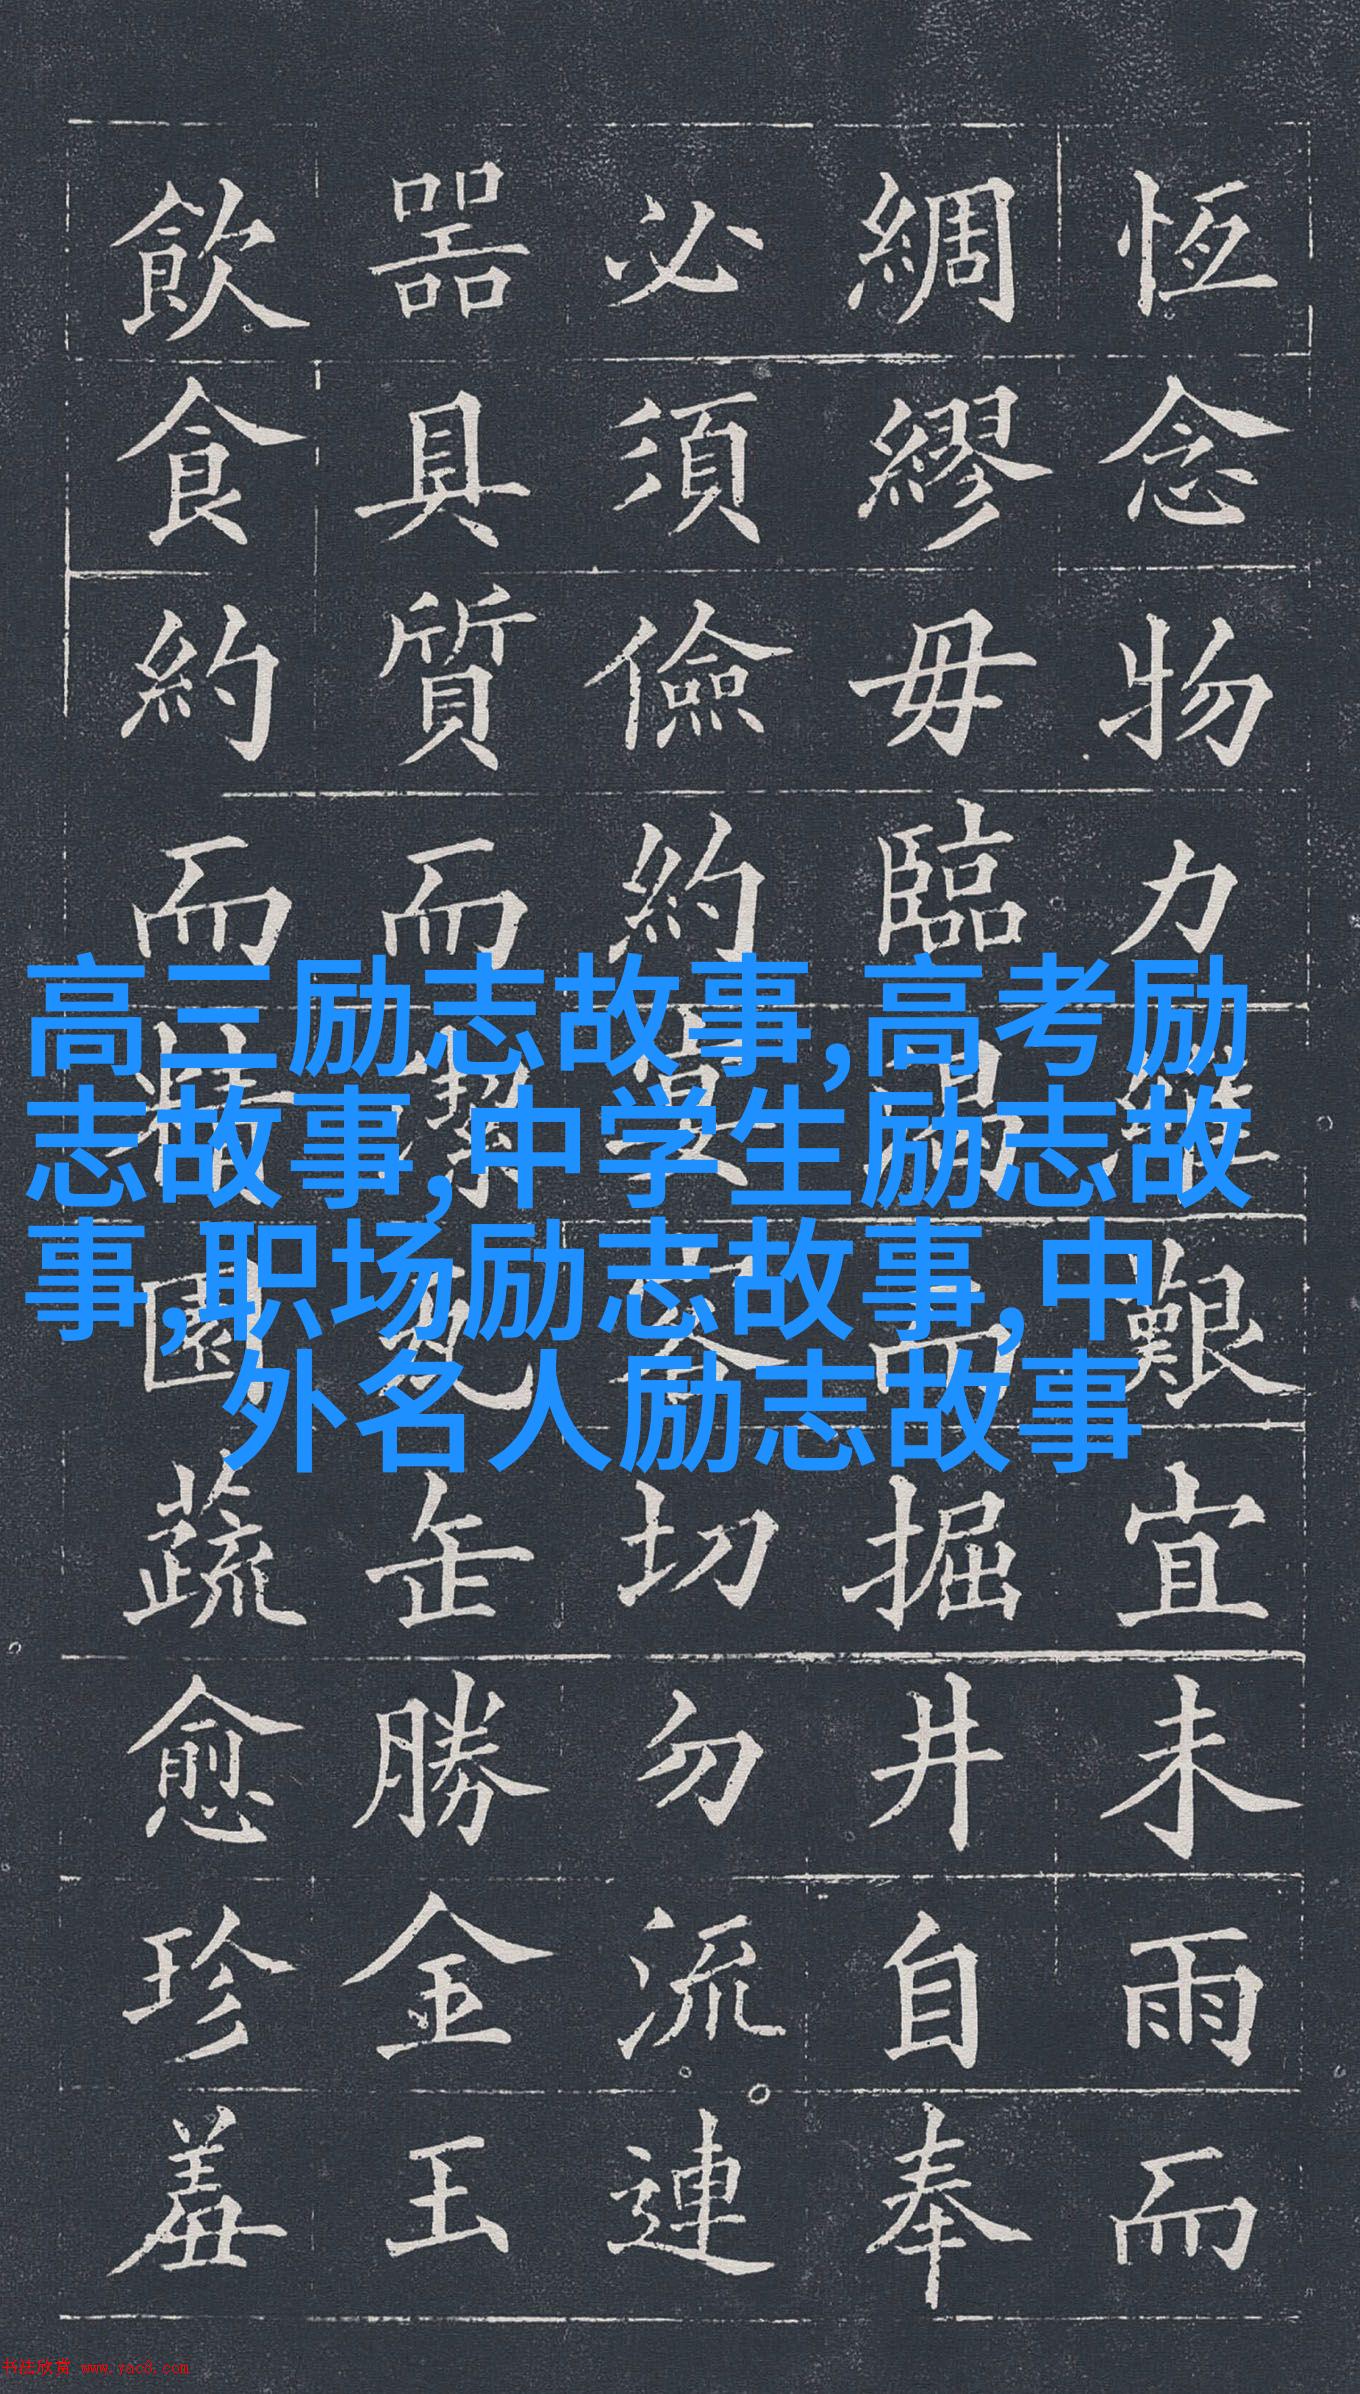 恆念物力維艱宜未雨而
綢繆毋臨渴而掘井自奉
必須儉約宴客切勿流連
噐具質而潔瓦缶勝金玉
飲食約而精園蔬愈珍羞
高三励志故事,高考励
志故事,中学生励志故
事,职场励志故事,中
外名人励志故事
书法欣赏 www.yac8.com